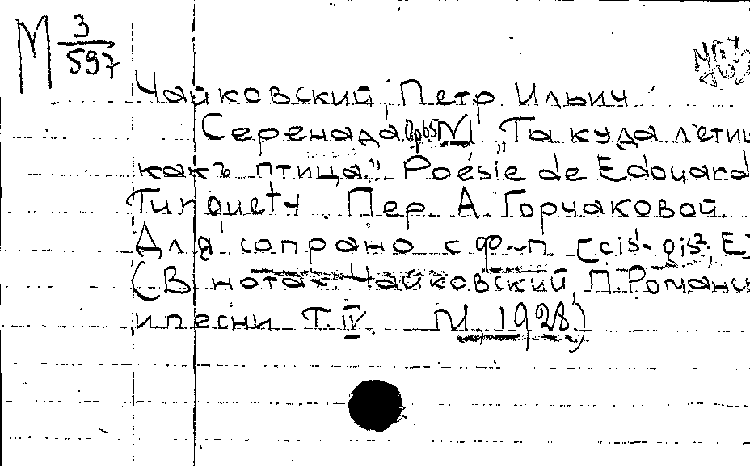 М 3/597
Чайковский, Петр Ильич.
Серенада Ор65 N1 „Та куда летиш
какъ птица". Poésie de Edouard
Turquety. Пер. А. Горчаковой
Для сопрано с ф-п [cis¹-gis², E]
(В нотах: Чайковский, П. Романсы
и песни Т. IV. М. 1928)